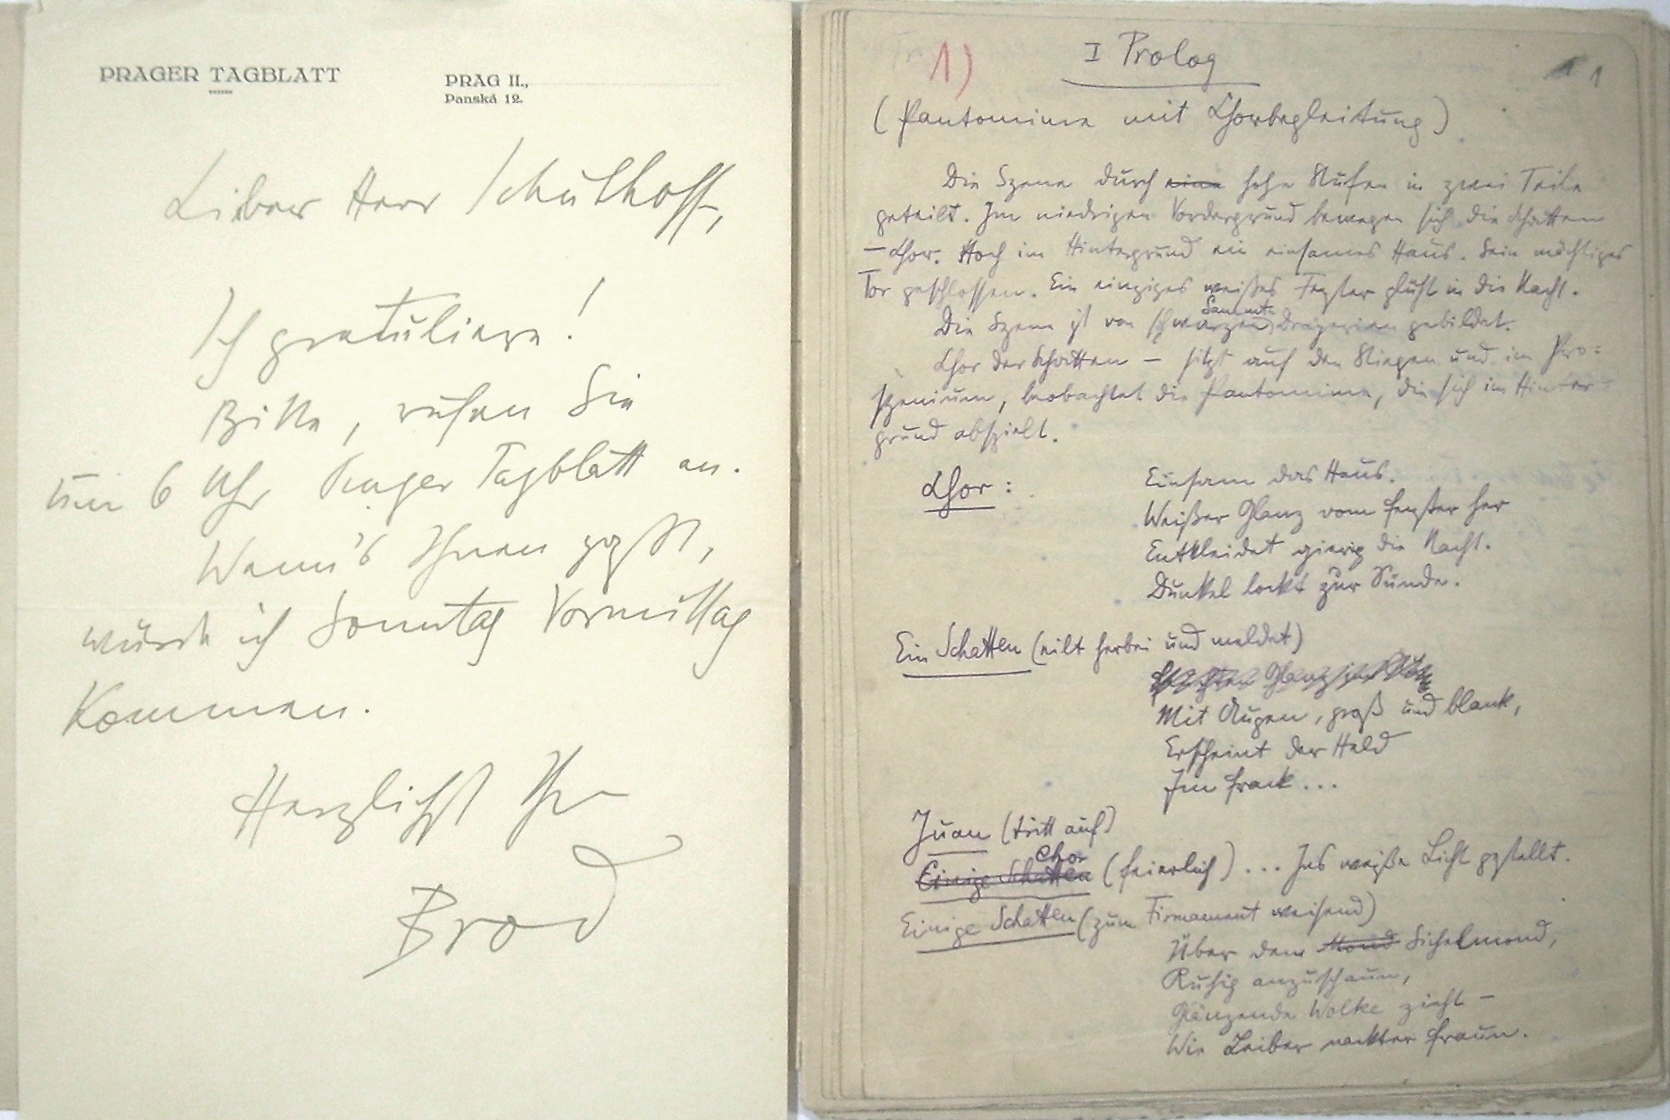 PRAGER TAGBLATT
PRAG II.,
Panská 12.
Lieber Herr Schulhoff,
Ich gratuliere!
Bitte, rufen Sie
um 6 Uhr Prager Tagblatt an.
Wenn's Ihnen paßt,
würde ich Sonntag Vormittag
kommen.
Herzlichst Ihr
Brod
1)
I Prolog
1
(Pantomime mit Chorbegleitung)
Die Szene durch eine hohe Stufen in zwei Teile
geteilt. Im niedrigen Vordergrund bewegen sich die Schatten
– Chor. Hoch im Hintergrund ein einsames Haus. Sein mächtiges
Tor geschlossen. Ein einziges weißes Fenster glüht in die Nacht.
Sammt-
Die Szene ist von schwarzen Draperien gebildet.
Chor der Schatten – sitzt auf den Stiegen und im Pro=
szenium, beobachtet die Pantomime, die sich im Hinter-
grund abspielt.
Chor:
Einsam das Haus.
Weißer Glanz vom Fenster her
Entkleidet gierig die Nacht.
Dunkel lockt zur Sünde.
Ein Schatten (eilt herbei und meldet)
Mit Augen, groß und blank,
Erscheint der Held
Im Frack...
Juan (tritt auf)
Chor
Einige Schatten (feierlich) ... Ins weiße Licht gestellt.
Einige Schatten (zum Firmament weisend)
Über dem Mond Sichelmond,
Ruhig anzuschaun,
Glänzende Wolke zieht –
Wie Leiber nackter Fraun.